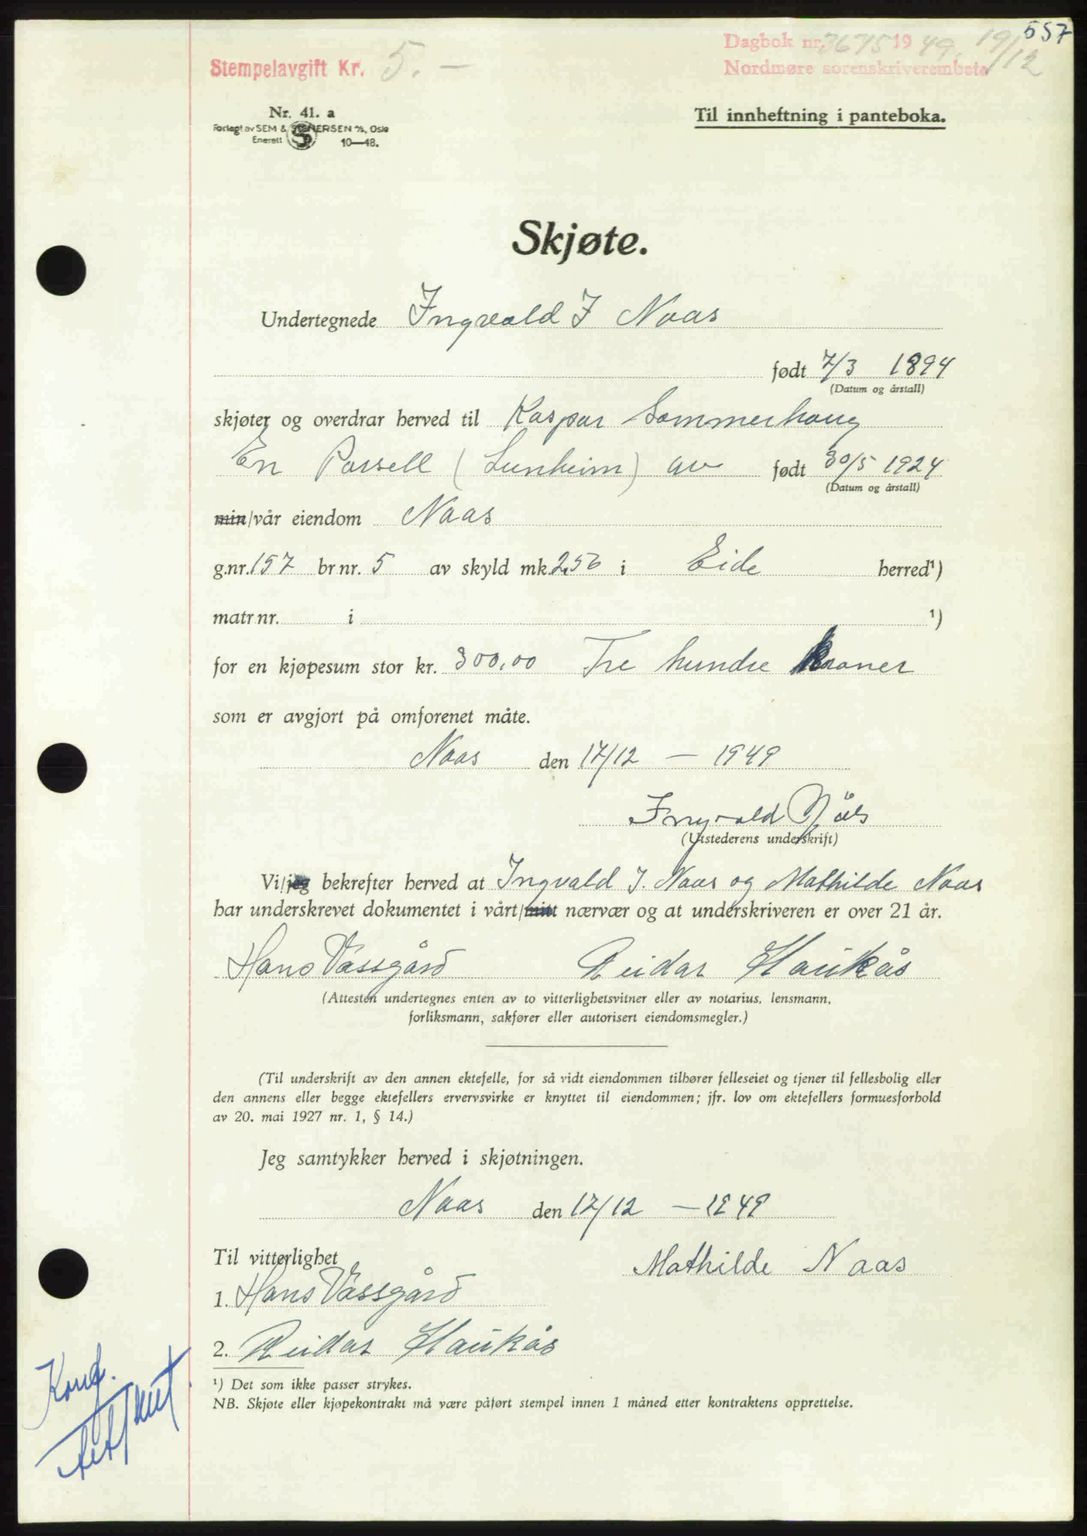 557
Dagbok nr. 3675 1949. 19/12
Stempelavgift Kr. 5.—
Nordmøre sorenskriverembete
Nr. 41. a
Forlagt av SEM & STENERSEN A/S, Oslo
Enerett S 10—48.
Til innheftning i panteboka.
Skjøte.
Undertegnede Ingvald I Naas
født 7/3 1894
(Datum og årstall)
skjøter og overdrar herved til Kaspar Sommerhaug
En Parsell (Lunheim) av født 30/5 1924
(Datum og årstall)
min/vår eiendom Naas
g.nr. 157 br nr. 5 av skyld mk. 2,56 i Eide herred¹)
matr nr. i ¹)
for en kjøpesum stor kr. 300,00 Tre hundre kroner
som er avgjort på omforenet måte.
Naas den 17/12 — 1949
Ingvald Nås
(Utstederens underskrift)
Vi/jeg bekrefter herved at Ingvald I. Naas og Mathilde Naas
har underskrevet dokumentet i vårt/mitt nærvær og at underskriveren er over 21 år.
Hans Vassgård Reidar Haukås
(Attesten undertegnes enten av to vitterlighetsvitner eller av notarius, lensmann,
forliksmann, sakfører eller autorisert eiendomsmegler.)
(Til underskrift av den annen ektefelle, for så vidt eiendommen tilhører felleseiet og tjener til fellesbolig eller
den annens eller begge ektefellers ervervsvirke er knyttet til eiendommen; jfr. lov om ektefellers formuesforhold
av 20. mai 1927 nr. 1, § 14.)
Jeg samtykker herved i skjøtningen.
Naas den 17/12 — 1949
Til vitterlighet
Mathilde Naas
1. Hans Vassgård
2. Reidar Haukås
Konf.
¹) Det som ikke passer strykes.
NB. Skjøte eller kjøpekontrakt må være påført stempel innen 1 måned etter kontraktens opprettelse.